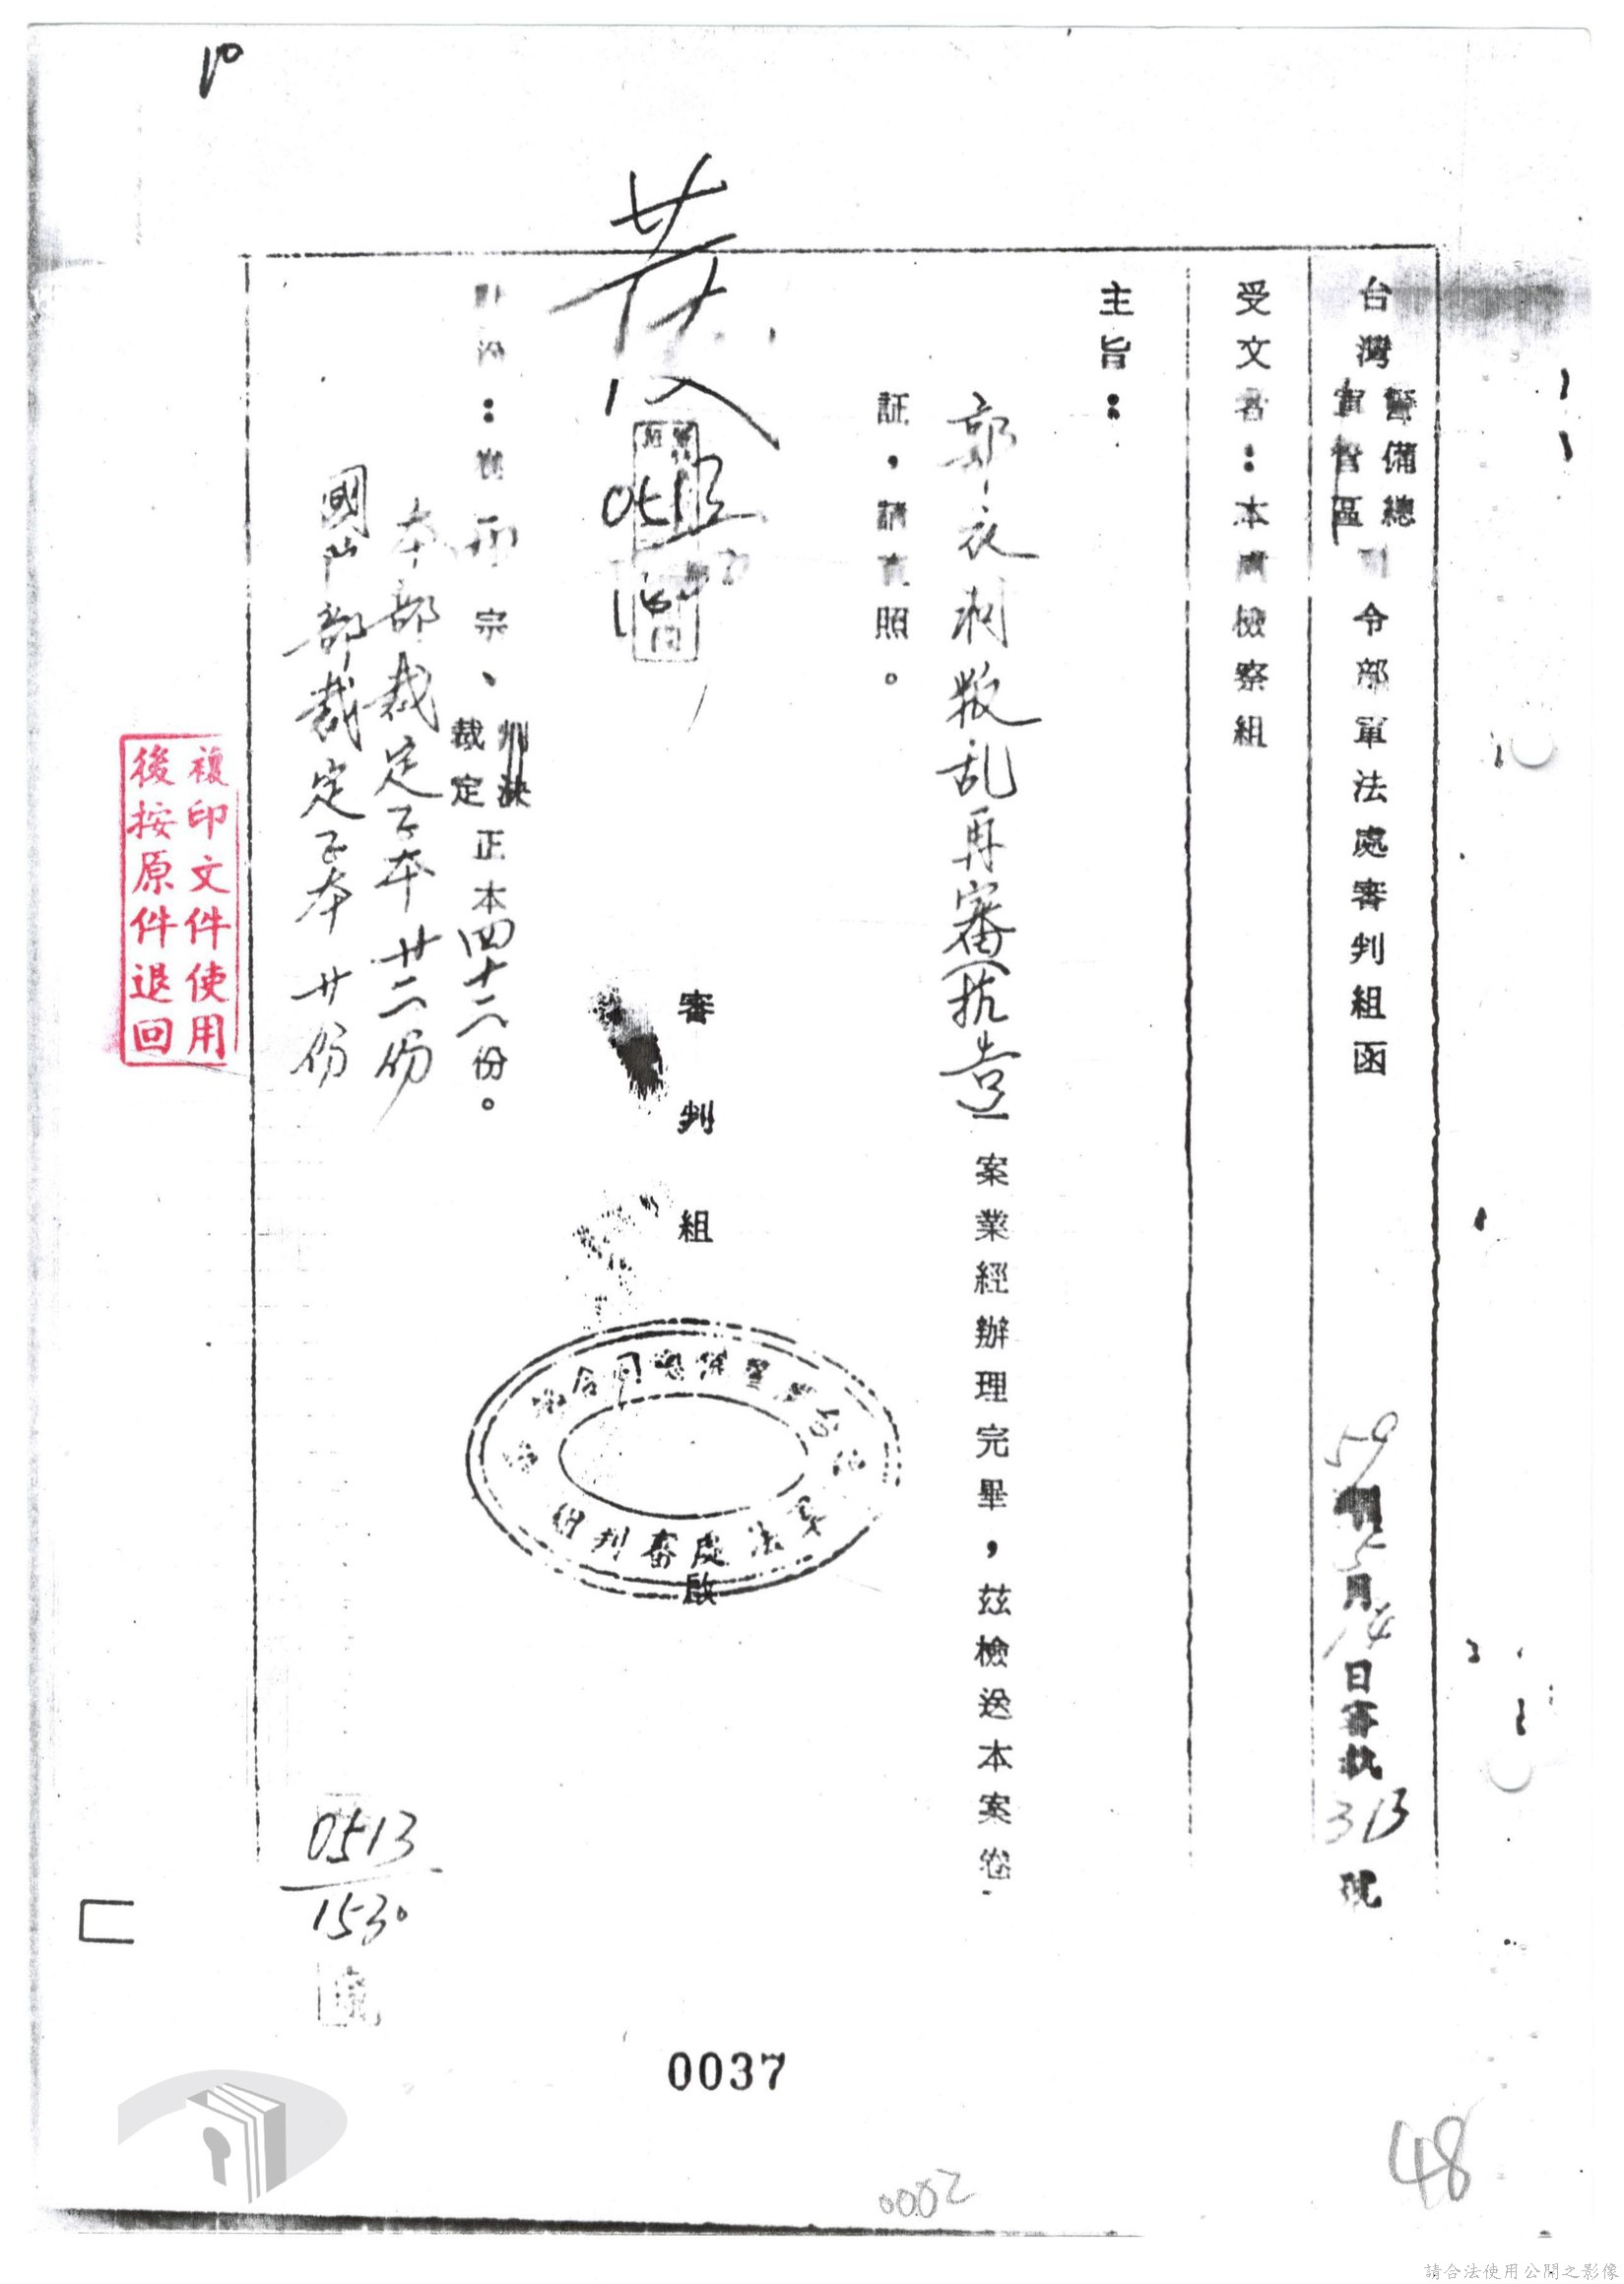 台灣警備總司令部軍法處審判組函
軍管區
59年5月14日審執313號
受文者：本處檢察組
主旨：
郭衣洞叛乱再審(抗告)案業經辦理完畢，茲檢送本案卷
証，請查照。
審判組
啟
軍法處審判組
附件：卷宗、判決裁定正本四十二份。
本部裁定正本廿二份
國防部裁定正本廿份
0513
1530
複印文件使用
後按原件退回
0037
0002
48
請合法使用公開之影像